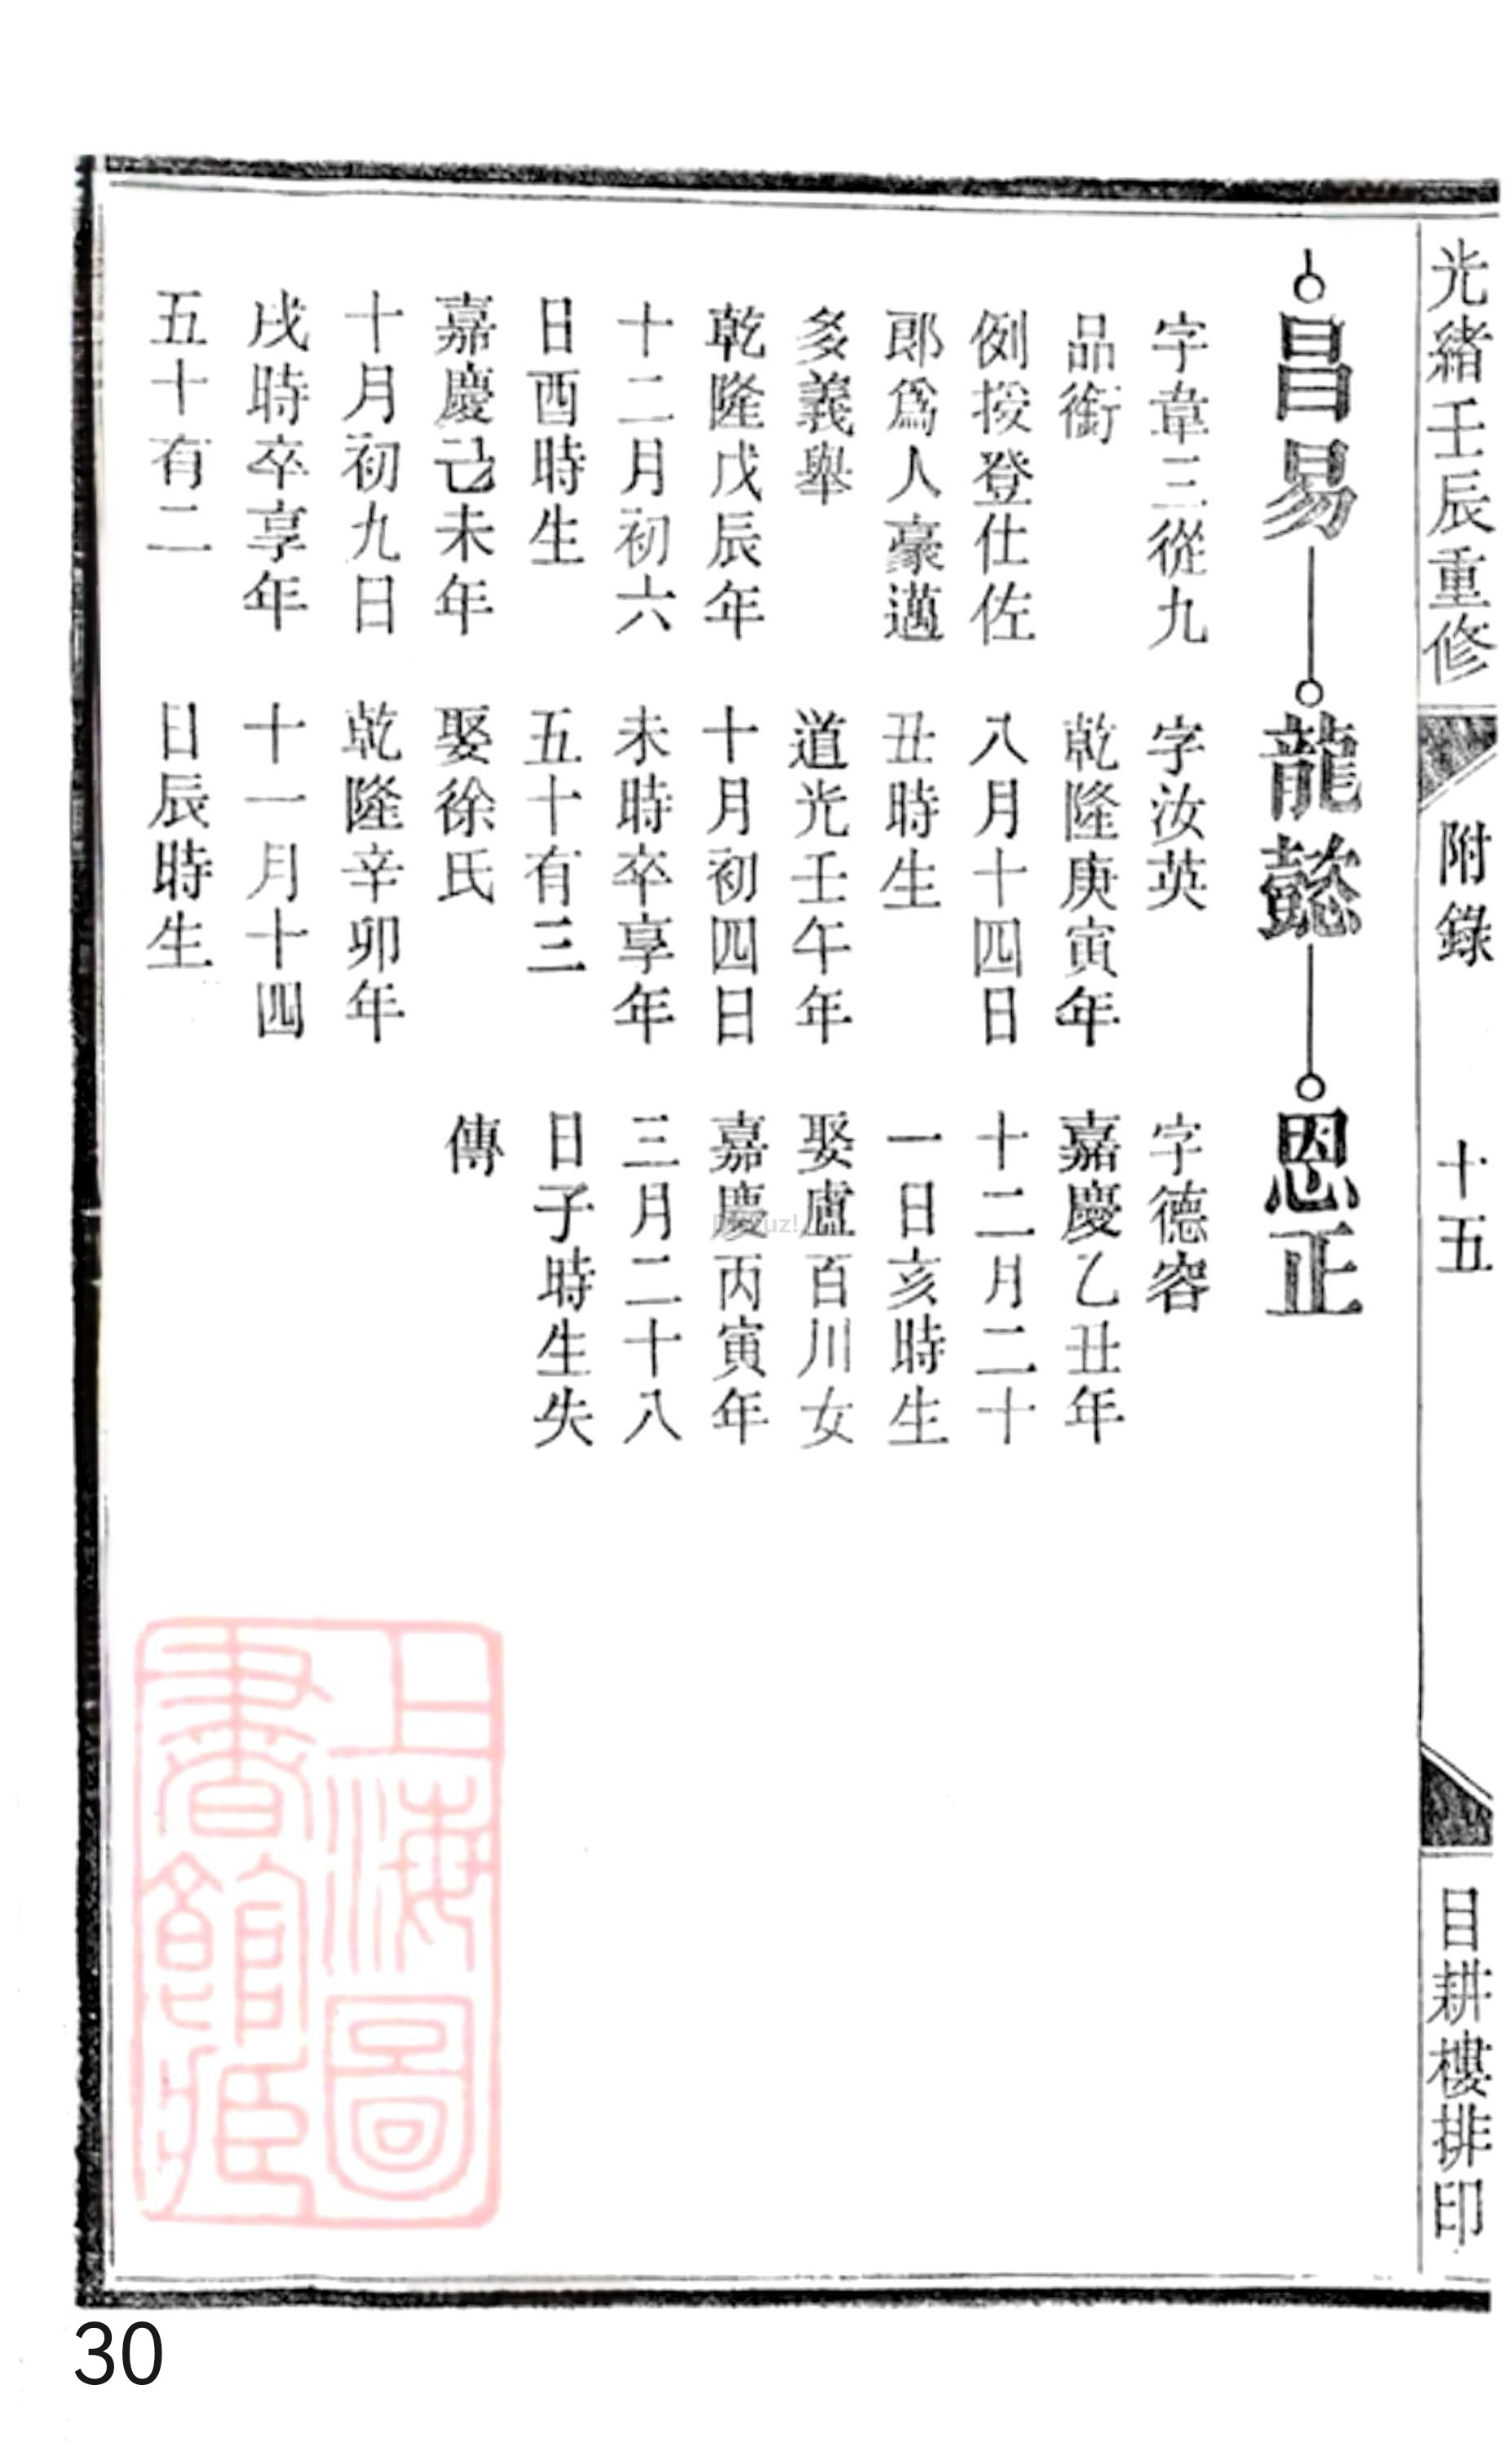 光緒壬辰重修
附錄
十五
目耕樓排印
昌易
龍懿
恩正
字韋三從九
品銜
例授登仕佐
郎爲人豪邁
多義舉
乾隆戊辰年
十二月初六
日酉時生
嘉慶己未年
十月初九日
戌時卒享年
五十有二
字汝英
乾隆庚寅年
八月十四日
丑時生
道光壬午年
十月初四日
未時卒享年
五十有三
娶徐氏
乾隆辛卯年
十一月十四
日辰時生
字德容
嘉慶乙丑年
十二月二十
一日亥時生
娶盧百川女
嘉慶丙寅年
三月二十八
日子時生失
傳
上海圖
書館藏
30